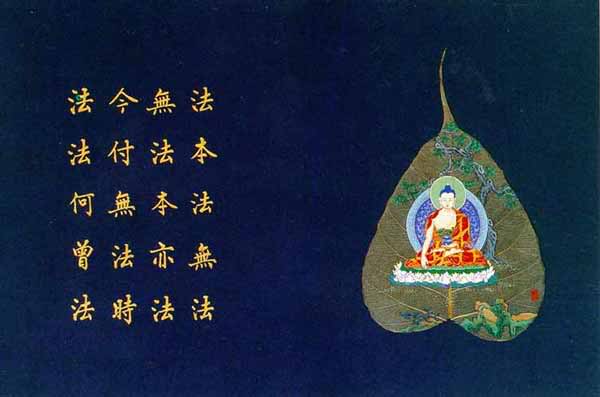 法本法無法
無法本亦法
今付無法時
法法何曾法